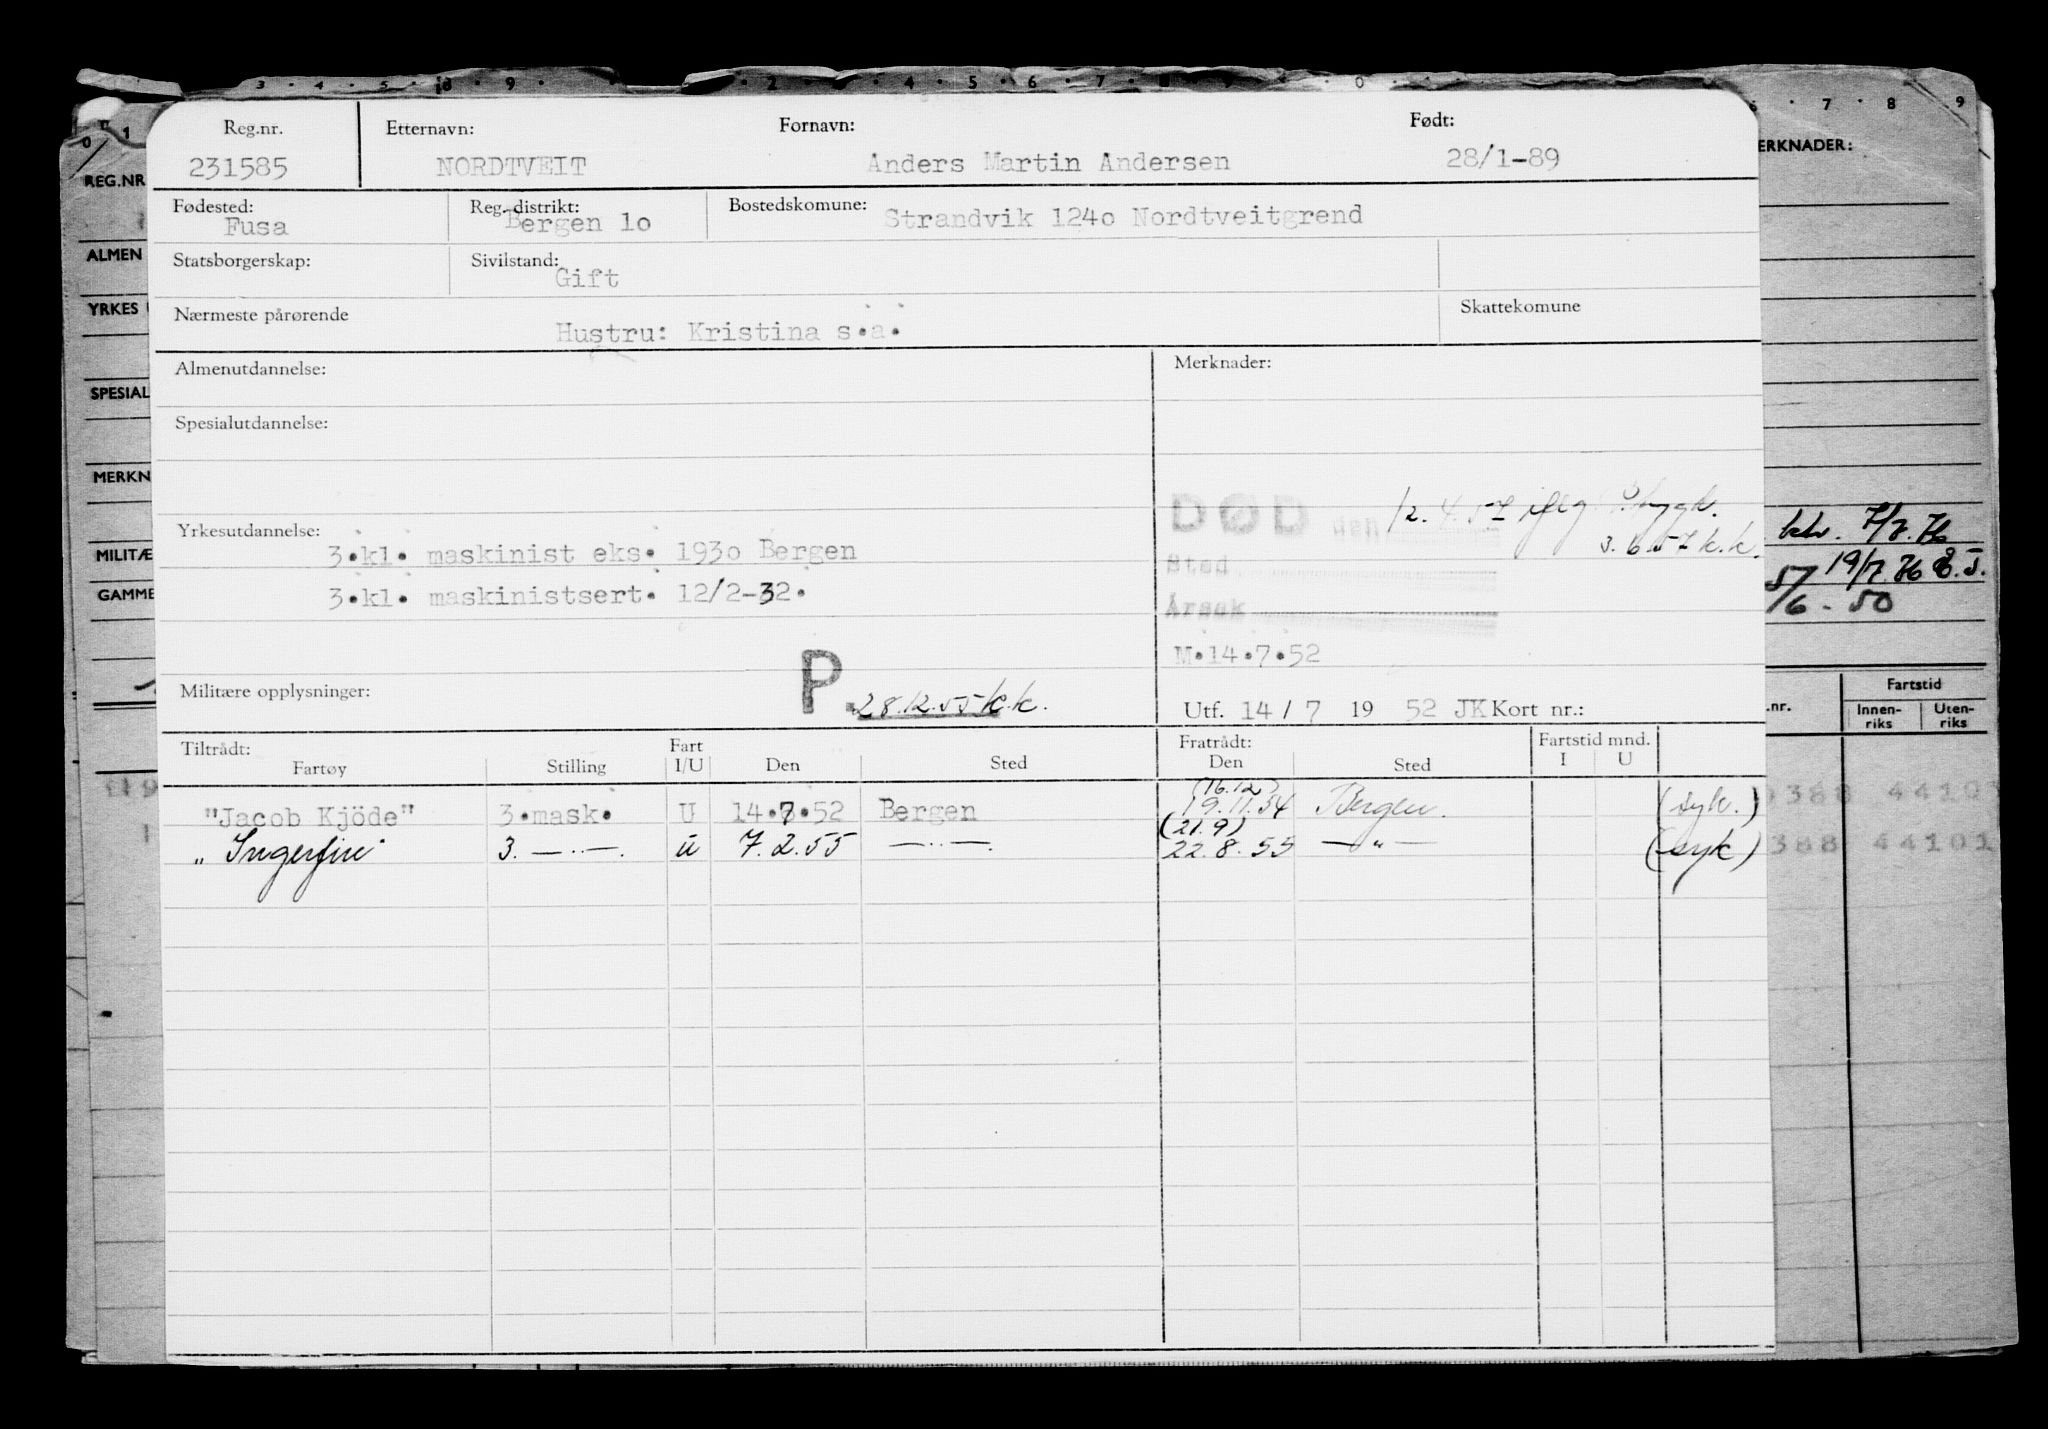 Reg.nr. Etternavn: Fornavn: Født:
231585 NORDTVEIT Anders Martin Andersen 28/1-89
Fødested: Reg. distrikt: Bostedskomune:
Fusa Bergen 1o Strandvik 124o Nordtveitgrend
Statsborgerskap: Sivilstand:
Gift
Nærmeste pårørende Skattekomune
Hustru: Kristina s.a.
Almenutdannelse: Merknader:
Spesialutdannelse:
DØD den 12.4.57 iflg trygk.
3.6.57 k.k.
Sted
Årsak
Yrkesutdannelse:
3.kl. maskinist eks. 193o Bergen
3.kl. maskinistsert. 12/2-32.
M.14.7.52
Militære opplysninger: P. 28.12.55 k.k.
Utf. 14 / 7 19 52 JK Kort nr.:
Tiltrådt: Fart Fratrådt: Fartstid mnd.
Fartøy Stilling I/U Den Sted Den Sted I U
(16.12)
"Jacob Kjöde" 3.mask. U 14.7.52 Bergen 19.11.54 Bergen. (syk.)
(21.9)
"Ingerfire" 3. —..—. u 7.2.55 —..—. 22.8.55 —"— (syk)
REG.NR
ALMEN
YRKES
SPESIAL
MERKN
MILITÆ
GAMME
ERKNADER:
7/7.76
57 19/7.76 E.J.
5/6 - 50
Fartstid
.nr. Innen-riks Uten-riks
388 44101
388 44101